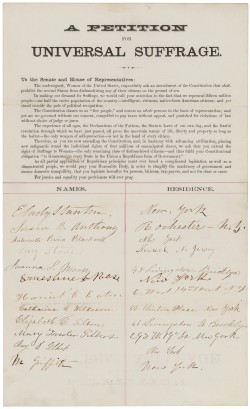 A PETITION
FOR
UNIVERSAL SUFFRAGE.
To the Senate and House of Representatives:
The undersigned, Women of the United States, respectfully ask an amendment of the Constitution that shall
prohibit the several States from disfranchising any of their citizens on the ground of sex.
In making our demand for Suffrage, we would call your attention to the fact that we represent fifteen million
people—one half the entire population of the country—intelligent, virtuous, native-born American citizens; and yet
stand outside the pale of political recognition.
The Constitution classes us as "free people," and counts us whole persons in the basis of representation; and
yet are we governed without our consent, compelled to pay taxes without appeal, and punished for violations of law
without choice of judge or juror.
The experience of all ages, the Declarations of the Fathers, the Statute Laws of our own day, and the fearful
revolution through which we have just passed, all prove the uncertain tenure of life, liberty and property so long as
the ballot—the only weapon of self-protection—is not in the hand of every citizen.
Therefore, as you are now amending the Constitution, and, in harmony with advancing civilization, placing
new safeguards round the individual rights of four millions of emancipated slaves, we ask that you extend the
right of Suffrage to Woman—the only remaining class of disfranchised citizens—and thus fulfil your Constitutional
obligation "to Guarantee to every State in the Union a Republican form of Government."
As all partial application of Republican principles must ever breed a complicated legislation as well as a
discontented people, we would pray your Honorable Body, in order to simplify the machinery of government and
ensure domestic tranquillity, that you legislate hereafter for persons, citizens, tax-payers, and not for class or caste.
For justice and equality your petitioners will ever pray.
NAMES. RESIDENCE.
E Cady Stanton New York
Susan B. Anthony Rochester - N.Y.
Antoinette Brown Blackwell New York
Lucy Stone Newark N. Jersey
Joanna S. Morse 48 Livingston Brooklyn
Ernestine L Rose New York
Harriet E. Eaton 6 West 14th Street N.Y.
Catharine C. Wilkeson
Elizabeth R. Tilton 48 Livingston St. Brooklyn
Mary Fowler Gilbert New York
M. Griffith New York.